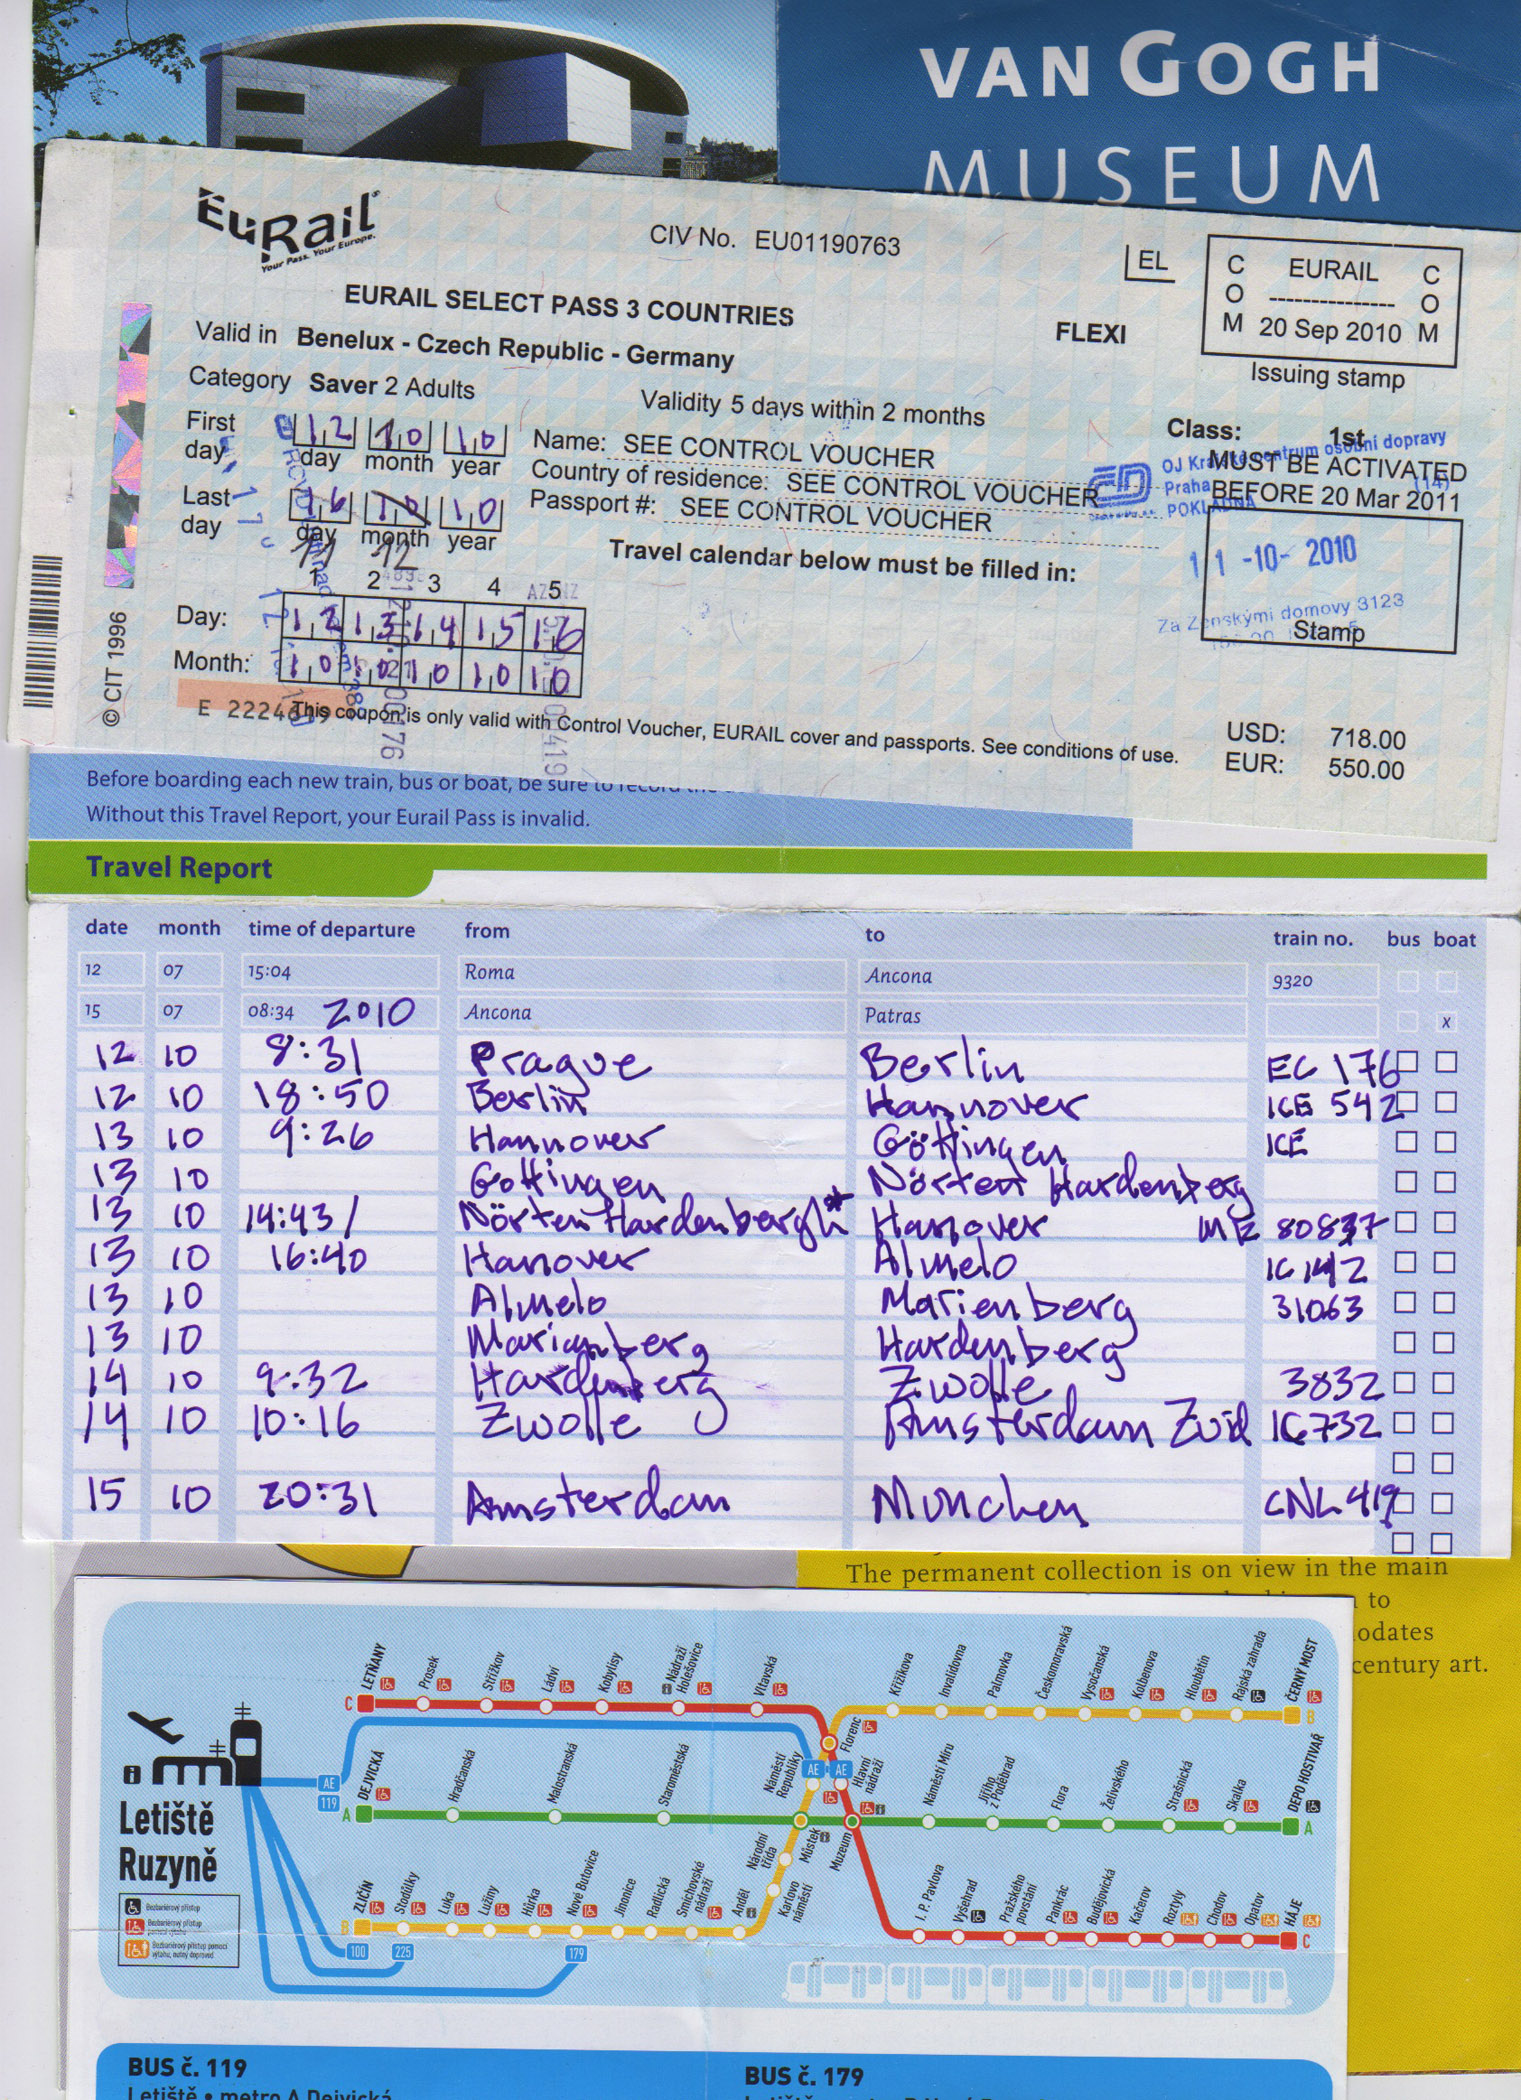 VAN GOGH
MUSEUM
EuRail
Your Pass. Your Europe.
CIV No. EU01190763
EL
COM EURAIL COM
20 Sep 2010
Issuing stamp
EURAIL SELECT PASS 3 COUNTRIES
FLEXI
Valid in Benelux - Czech Republic - Germany
Category Saver 2 Adults
Validity 5 days within 2 months
Class: 1st
MUST BE ACTIVATED
BEFORE 20 Mar 2011
OJ Krajské centrum osobní dopravy
Praha (14)
POKLADNA
11 -10- 2010
Za Ženskými domovy 3123
Stamp
First day 12 10 10
day month year
Last day 16 10 10
day month year
11 12
Name: SEE CONTROL VOUCHER
Country of residence: SEE CONTROL VOUCHER
Passport #: SEE CONTROL VOUCHER
Travel calendar below must be filled in:
1 2 3 4 5
Day: 12 13 14 15 16
Month: 10 10 10 10 10
© CIT 1996
This coupon is only valid with Control Voucher, EURAIL cover and passports. See conditions of use.
USD: 718.00
EUR: 550.00
Before boarding each new train, bus or boat, be sure to record the
Without this Travel Report, your Eurail Pass is invalid.
Travel Report
date month time of departure from to train no. bus boat
12 07 15:04 Roma Ancona 9320
15 07 08:34 2010 Ancona Patras x
12 10 8:31 Prague Berlin EC 176
12 10 18:50 Berlin Hannover ICE 542
13 10 9:26 Hannover Göttingen ICE
13 10 Gottingen Nörten Hardenberg
13 10 14:43/ Nörten Hardenbergh* Hanover ME 80837
13 10 16:40 Hanover Almelo IC 142
13 10 Almelo Marienberg 31063
13 10 Marianberg Hardenberg
14 10 9:32 Hardenberg Zwolle 3832
14 10 10:16 Zwolle Amsterdam Zuid IC732
15 10 20:31 Amsterdam Munchen CNL 419
The permanent collection is on view in the main
to
odates
century art.
C LETŇANY Prosek Střížkov Ládví Kobylisy Nádraží Holešovice Vltavská
Florenc Křižíkova Invalidovna Palmovka Českomoravská Vysočanská Kolbenova Hloubětín Rajská zahrada ČERNÝ MOST B
AE
119
A DEJVICKÁ Hradčanská Malostranská Staroměstská Náměstí Republiky
AE AE
Hlavní nádraží Náměstí Míru Jiřího z Poděbrad Flora Želivského Strašnická Skalka DEPO HOSTIVAŘ A
Můstek Muzeum
Letiště
Ruzyně
Bezbariérový přístup
Bezbariérový přístup
pomocí výtahu
Bezbariérový přístup pomocí
výtahu, nutný doprovod
B ZLIČÍN Stodůlky Luka Lužiny Hůrka Nové Butovice Jinonice Radlická Smíchovské nádraží Anděl Karlovo náměstí Národní třída
I. P. Pavlova Vyšehrad Pražského povstání Pankrác Budějovická Kačerov Roztyly Chodov Opatov HÁJE C
100 225 179
BUS č. 119
Letiště • metro A Dejvická
BUS č. 179